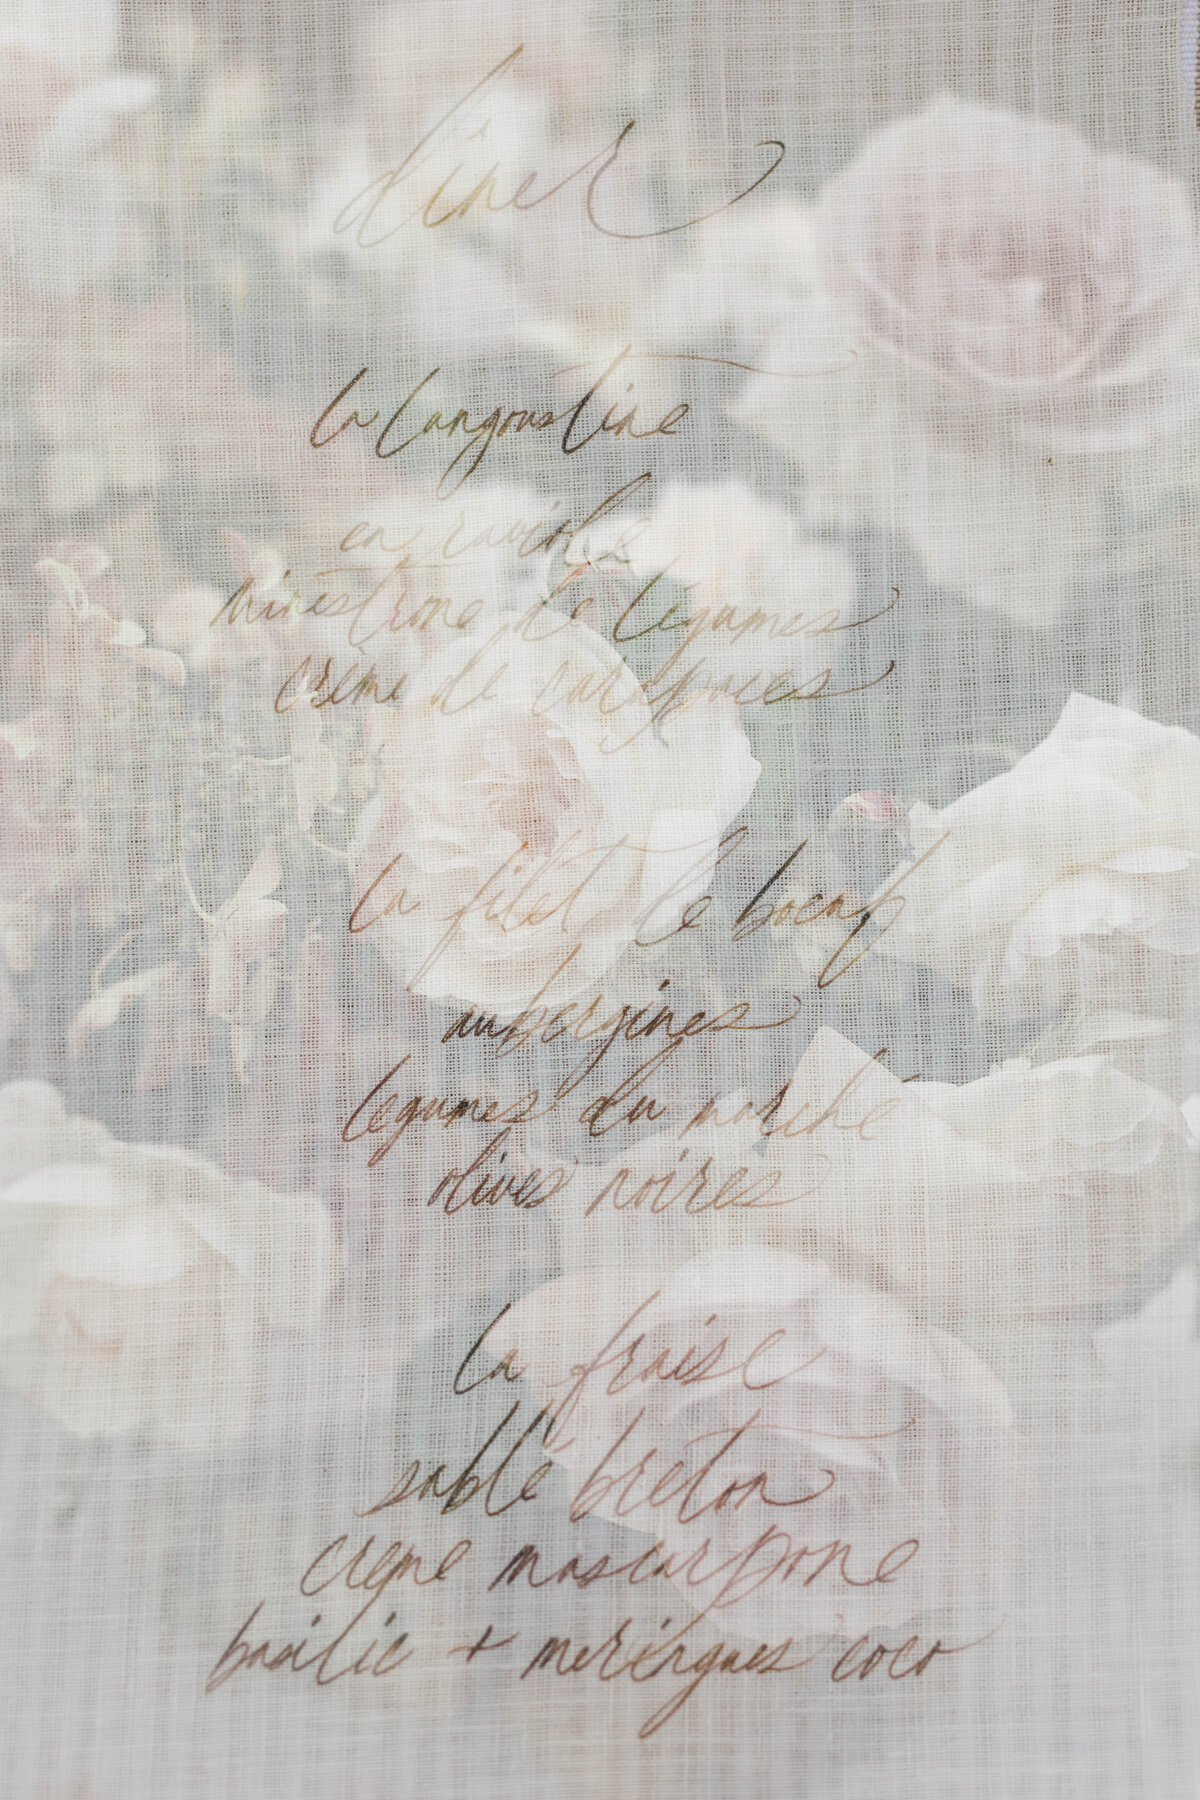 dîner
la langoustine
en raviole
minestrone de légumes
crème de carapaces
la filet de boeuf
aubergines
légumes du marché
olives noires
la fraise
sablé breton
crème mascarpone
basilic + meringues coco